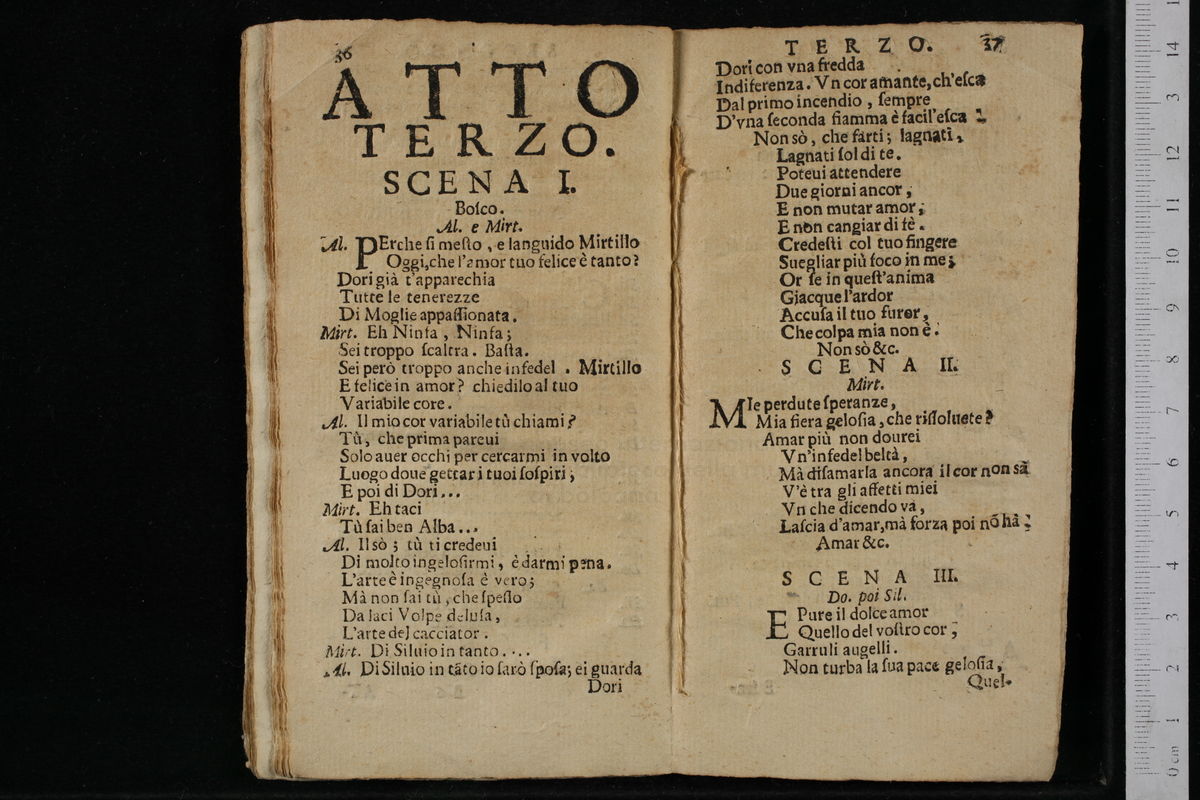 36
ATTO
TERZO.
SCENA I.
Boſco.
Al. e Mirt.
Al. PErche ſi meſto, e languido Mirtillo
Oggi, che l'amor tuo felice è tanto?
Dori già t'apparechia
Tutte le tenerezze
Di Moglie appaſſionata.
Mirt. Eh Ninfa, Ninfa;
Sei troppo ſcaltra. Baſta.
Sei però troppo anche infedel. Mirtillo
E felice in amor? chiedilo al tuo
Variabile core.
Al. Il mio cor variabile tù chiami?
Tù, che prima pareui
Solo auer occhi per cercarmi in volto
Luogo doue gettar i tuoi ſoſpiri;
E poi di Dori...
Mirt. Eh taci
Tù ſai ben Alba...
Al. Il sò; tù ti credeui
Di molto ingeloſirmi, è darmi pena.
L'arte è ingegnoſa è vero;
Mà non ſai tù, che ſpeſſo
Da laci Volpe deluſa,
L'arte del cacciator.
Mirt. Di Siluio in tanto....
Al. Di Siluio in tãto io ſarò ſpoſa; ei guarda
Dori
TERZO. 37
Dori con vna fredda
Indiferenza. Vn cor amante, ch'eſca
Dal primo incendio, ſempre
D'vna ſeconda fiamma è facil'eſca.
Non sò, che farti; lagnati,
Lagnati ſol di te.
Poteui attendere
Due giorni ancor,
E non mutar amor;
E non cangiar di fè.
Credeſti col tuo fingere
Suegliar più foco in me;
Or ſe in queſt'anima
Giacque l'ardor
Accuſa il tuo furor,
Che colpa mia non è.
Non sò &c.
SCENA II.
Mirt.
MIe perdute ſperanze,
Mia fiera geloſia, che riſſoluete?
Amar più non dourei
Vn'infedel beltà,
Mà diſamarla ancora il cor non sà
V'è tra gli affetti miei
Vn che dicendo và,
Laſcia d'amar, mà forza poi nõ hà.
Amar &c.
SCENA III.
Do. poi Sil.
E Pure il dolce amor
Quello del voſtro cor,
Garruli augelli.
Non turba la ſua pace geloſia,
Quel-